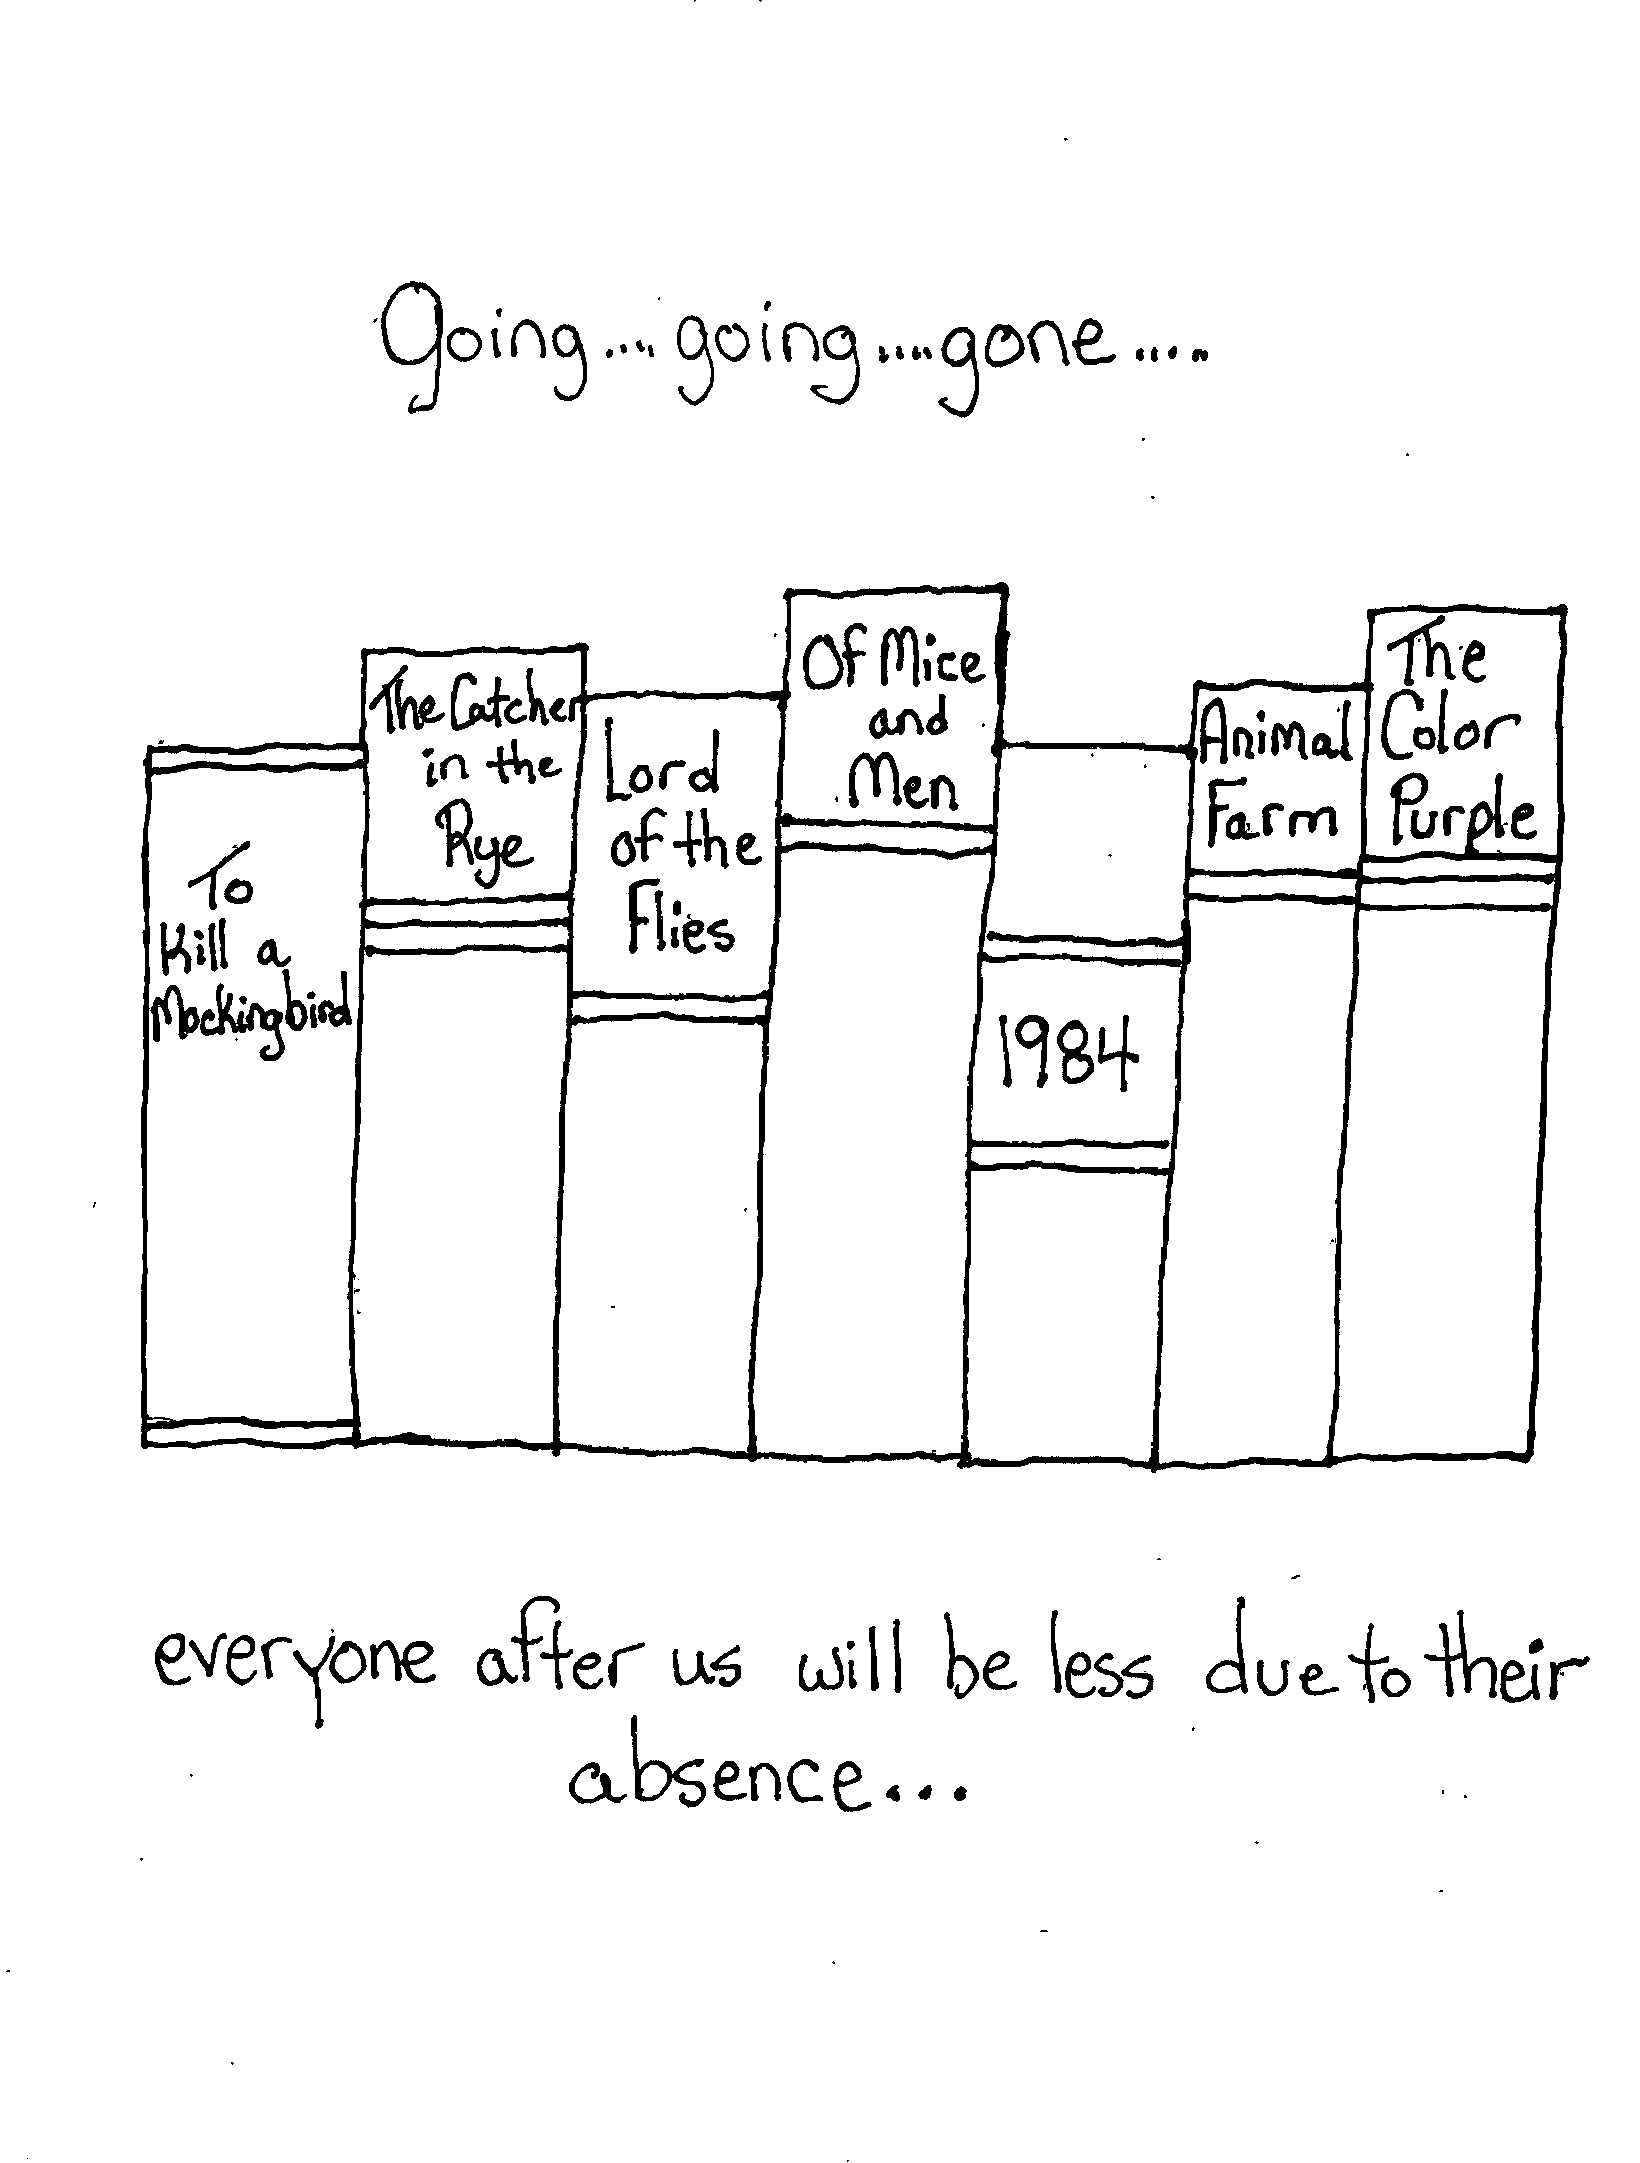 Going....going....gone.....
To
Kill a
Mockingbird
The Catcher
in the
Rye
Lord
of the
Flies
Of Mice
and
Men
1984
Animal
Farm
The
Color
Purple
everyone after us will be less due to their
absence...